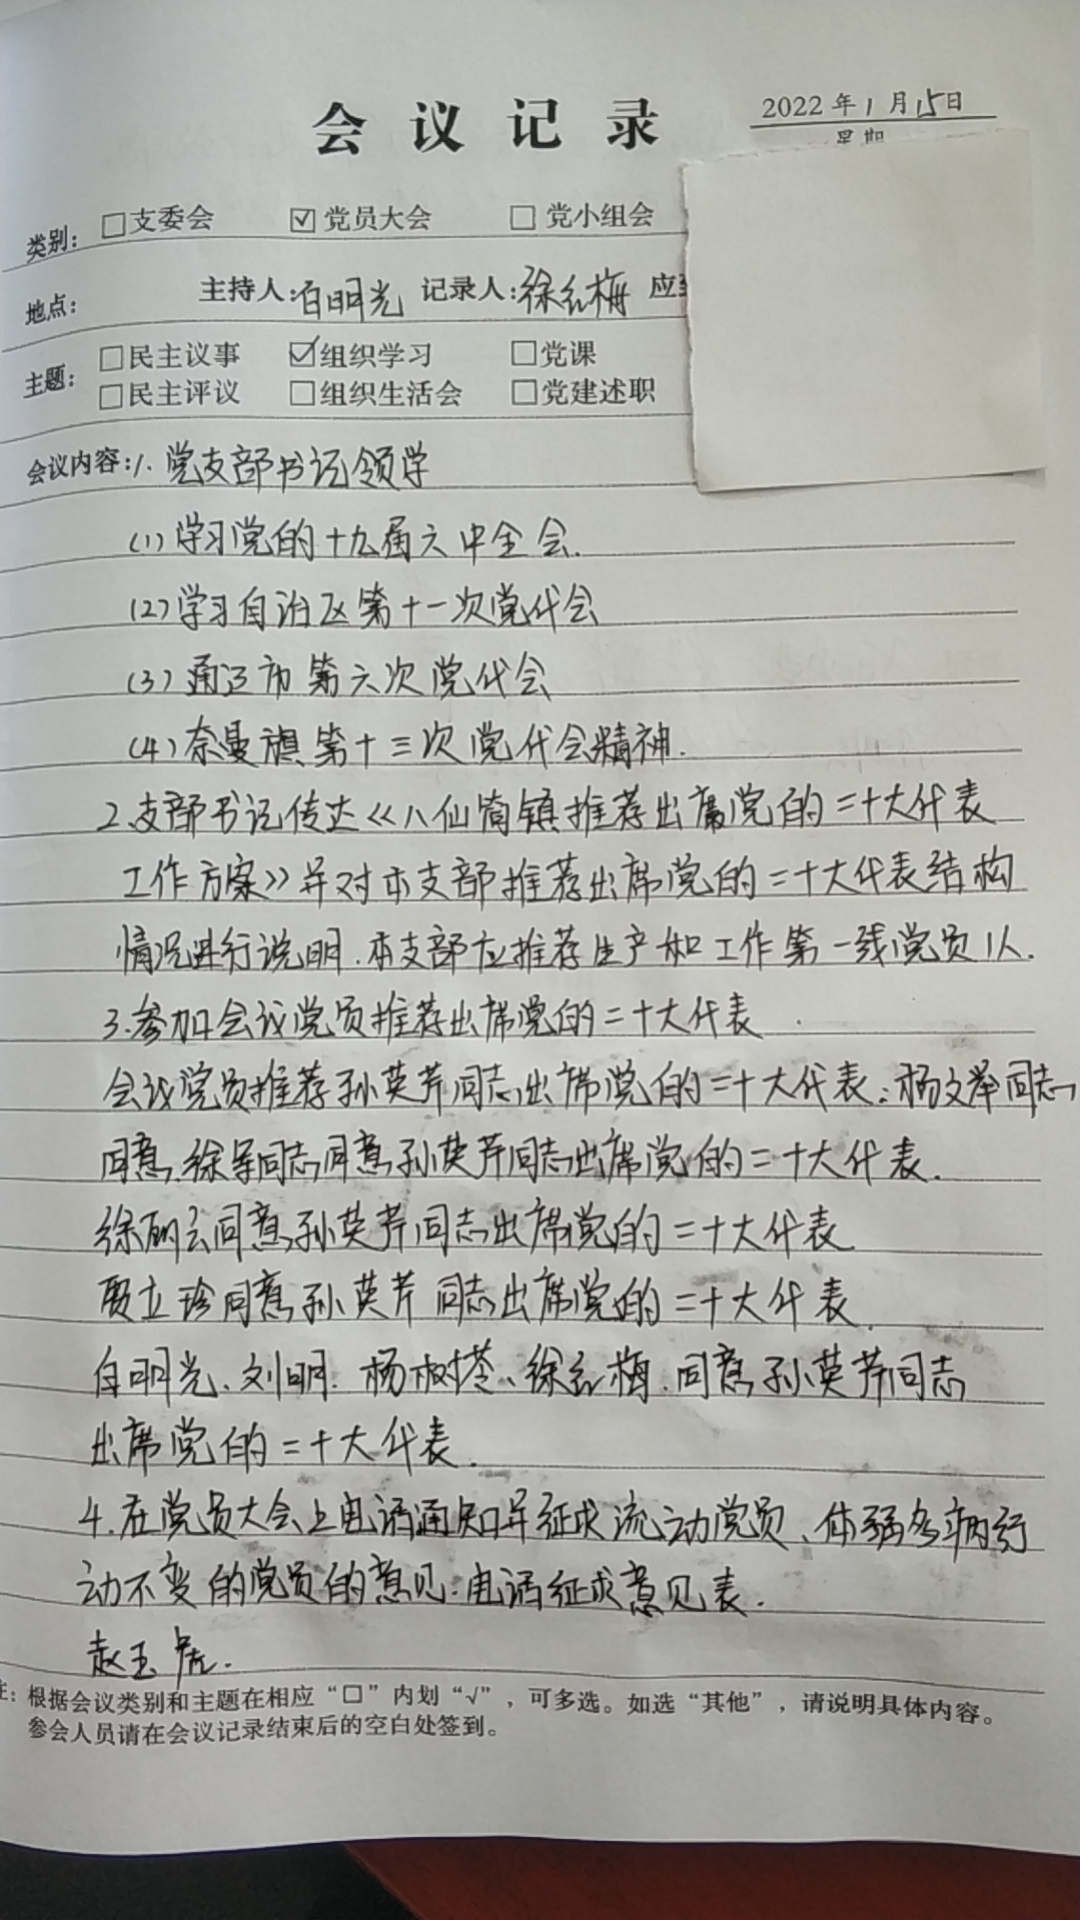 会议记录
2022年1月15日
星期
类别：□支委会 ☑党员大会 □党小组会
地点： 主持人：白明光 记录人：徐红梅 应到
主题：□民主议事 ☑组织学习 □党课
□民主评议 □组织生活会 □党建述职
会议内容：1.党支部书记领学
(1)学习党的十九届六中全会.
(2)学习自治区第十一次党代会
(3)通辽市第六次党代会
(4)奈曼旗第十三次党代会精神.
2.支部书记传达《八仙筒镇推荐出席党的二十大代表
工作方案》并对本支部推荐出席党的二十大代表结构
情况进行说明.本支部应推荐生产和工作第一线党员1人.
3.参加会议党员推荐出席党的二十大代表
会议党员推荐孙英芹同志出席党的二十大代表：杨文举同志
同意.徐军同志同意孙英芹同志出席党的二十大代表.
徐丽云同意孙英芹同志出席党的二十大代表.
贾立珍同意孙英芹同志出席党的二十大代表.
白明光、刘明.杨树苍、徐红梅.同意孙英芹同志
出席党的二十大代表.
4.在党员大会上电话通知并征求流动党员、体弱多病行
动不变的党员的意见：电话征求意见表.
赵玉
注：根据会议类别和主题在相应“□”内划“√”，可多选。如选“其他”，请说明具体内容。
参会人员请在会议记录结束后的空白处签到。